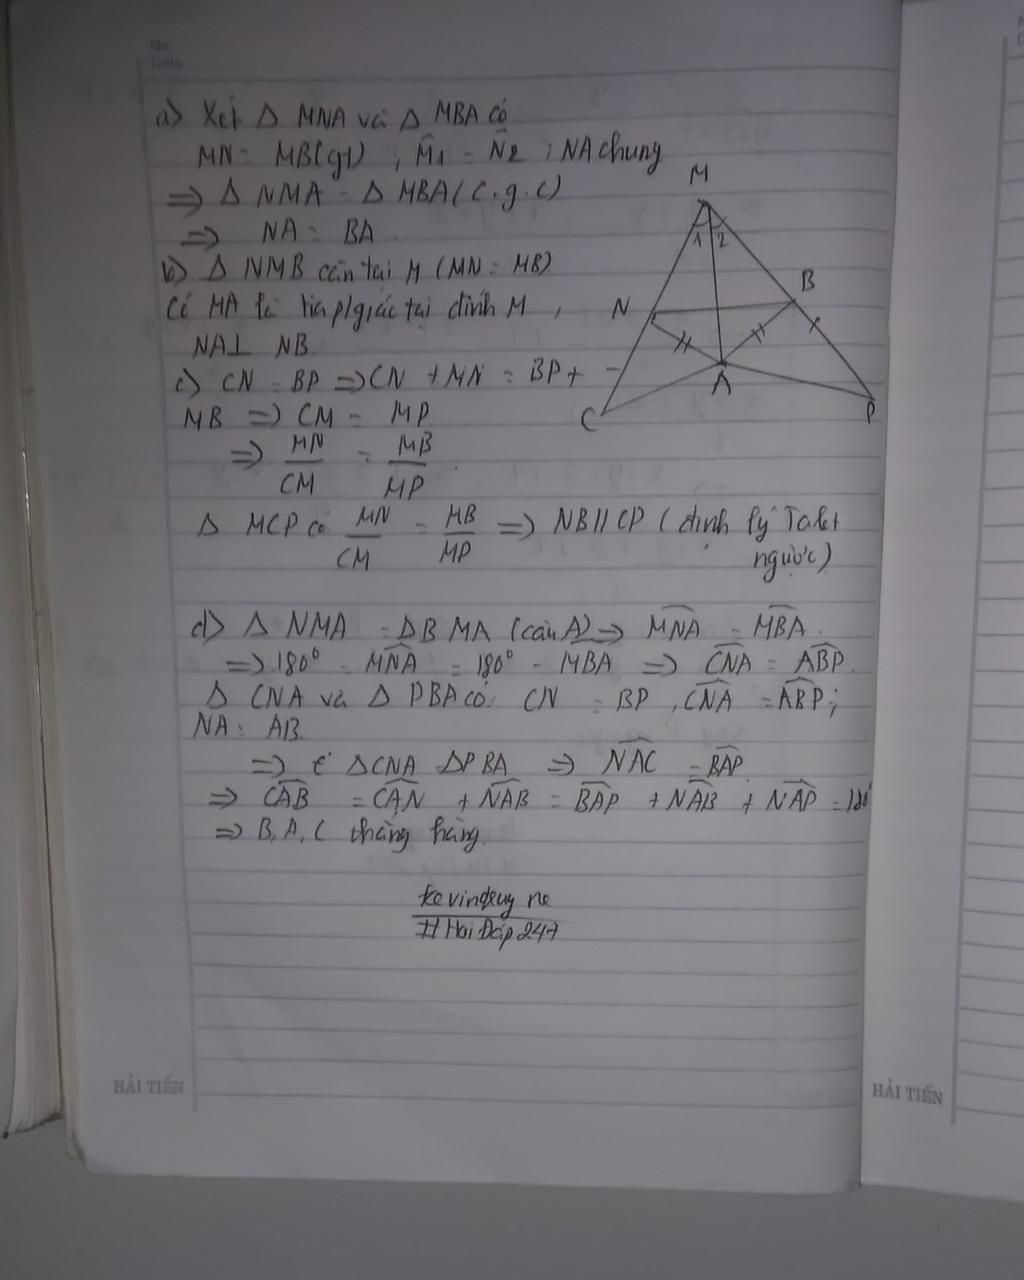 No
Date
a) Xét Δ MNA và Δ MBA có
MN = MB(gt) ; M̂1 = N̂2 ; NA chung
⇒ Δ NMA = Δ MBA (c.g.c)
⇒ NA = BA
b) Δ NMB cân tại M (MN = MB)
Có MA là tia p/giác tại đỉnh M,
NA⊥ NB
c) CN = BP ⇒ CN + MN = BP +
MB ⇒ CM = MP
⇒ MN/CM = MB/MP
Δ MCP có MN/CM = MB/MP ⇒ NB // CP ( định lý Talet
ngược)
d) Δ NMA = ΔB MA (câu A) ⇒ M̂NA = M̂BA
⇒ 180° - M̂NA = 180° - M̂BA ⇒ ĈNA = ÂBP
Δ CNA và Δ PBA có: CN = BP , ĈNA = ÂBP;
NA = AB
⇒ ΔCNA ΔPBA ⇒ N̂AC = B̂AP
⇒ ĈAB = ĈAN + N̂AB = B̂AP + N̂AB + N̂AP = 180
⇒ B, A, C thẳng hàng.
M
1 2
B
N
A
C
P
kevinduy ne
#Hoi Đáp 247
HẢI TIẾN
HẢI TIẾN